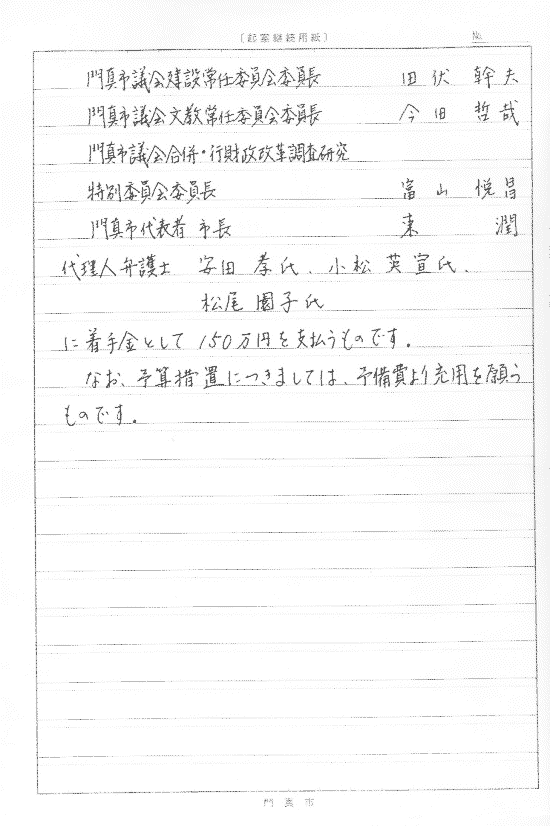 〔起案継続用紙〕 No.
門真市議会建設常任委員会委員長 田伏幹夫
門真市議会文教常任委員会委員長 今田哲哉
門真市議会合併・行財政改革調査研究
特別委員会委員長 富山悦昌
門真市代表者 市長 東潤
代理人弁護士 安田孝氏、小松英宣氏、
松尾園子氏
に着手金として150万円を支払うものです。
なお、予算措置につきましては、予備費より充用を願う
ものです。
門真市